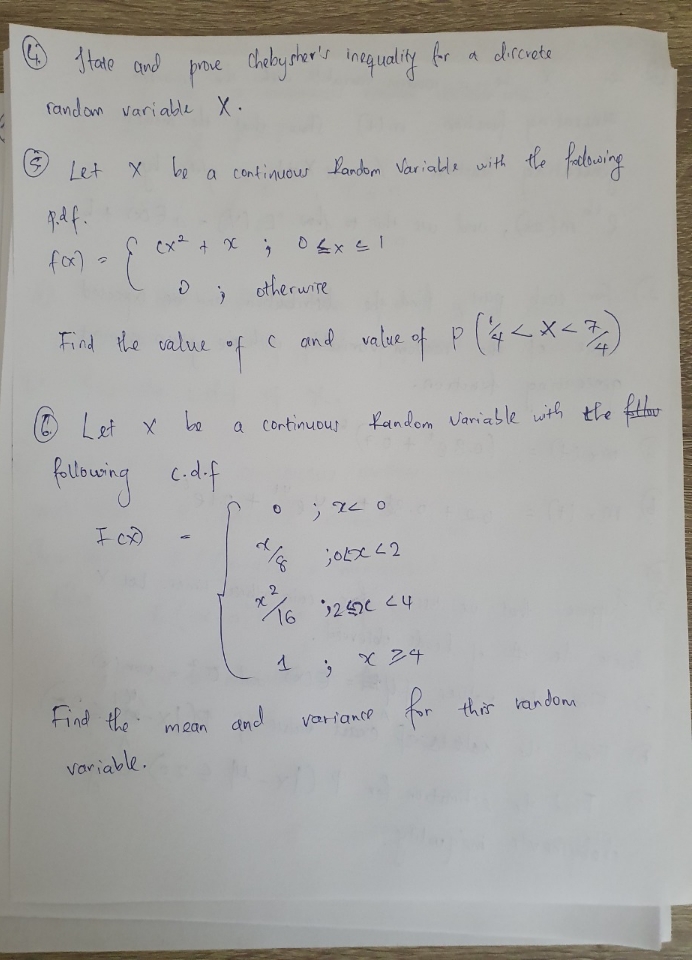 ④ State and prove Chebyshev's inequality for a discrete
random variable X.
⑤ Let X be a continuous Random Variable with the following
p.d.f.
f(x) = { cx² + x ; 0 ≤ x ≤ 1
0 ; otherwise
Find the value of c and value of P (1/4 < X < 7/4)
⑥ Let X be a continuous Random Variable with the follow
following c.d.f
F(x) = { 0 ; x < 0
x/8 ; 0 < x < 2
x²/16 ; 2 ≤ x < 4
1 ; x ≥ 4
Find the mean and variance for this random
variable.